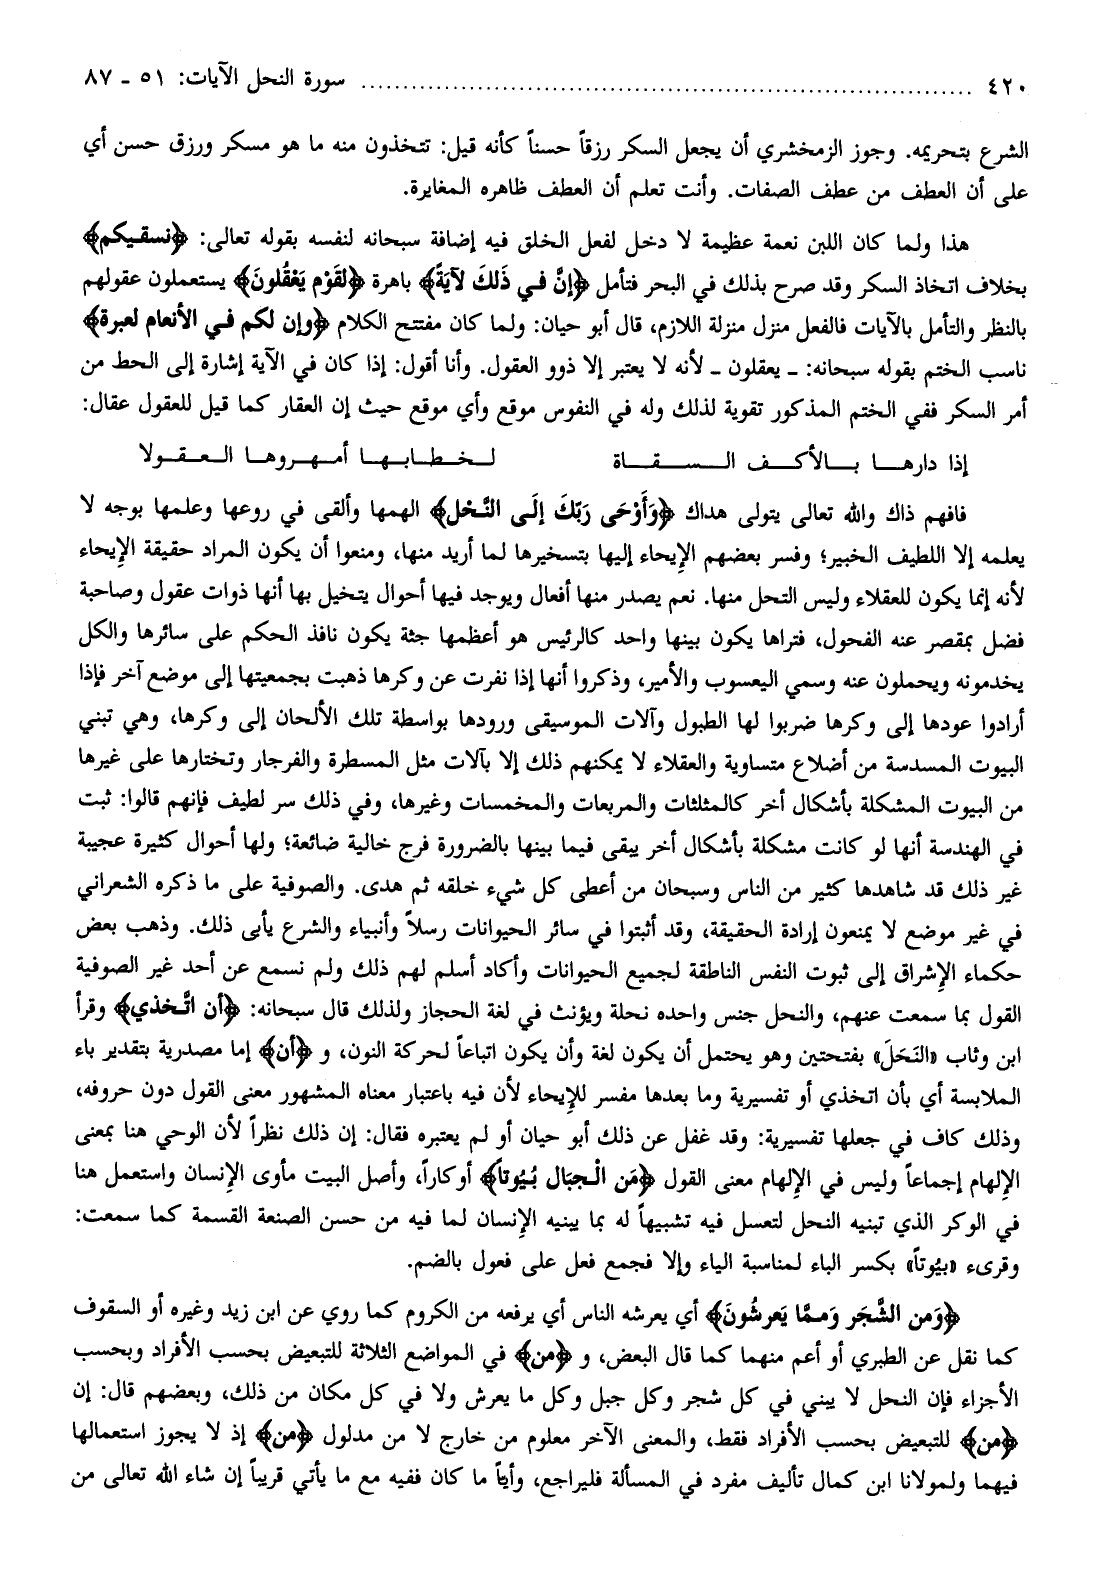 ٤٢٠ ........................................................................ سورة النحل الآيات: ٥١ - ٨٧
الشرع بتحريمه. وجوز الزمخشري أن يجعل السكر رزقاً حسناً كأنه قيل: تتخذون منه ما هو مسكر ورزق حسن أي
على أن العطف من عطف الصفات. وأنت تعلم أن العطف ظاهره المغايرة.
هذا ولما كان اللبن نعمة عظيمة لا دخل لفعل الخلق فيه إضافة سبحانه لنفسه بقوله تعالى: ﴿نسقيكم﴾
بخلاف اتخاذ السكر وقد صرح بذلك في البحر فتأمل ﴿إنَّ في ذَلكَ لآيَةً﴾ باهرة ﴿لقَوْم يَعْقُلونَ﴾ يستعملون عقولهم
بالنظر والتأمل بالآيات فالفعل منزل منزلة اللازم، قال أبو حيان: ولما كان مفتتح الكلام ﴿وإن لكم في الأنعام لعبرة﴾
ناسب الختم بقوله سبحانه: ـ يعقلون ـ لأنه لا يعتبر إلا ذوو العقول. وأنا أقول: إذا كان في الآية إشارة إلى الحط من
أمر السكر ففي الختم المذكور تقوية لذلك وله في النفوس موقع وأي موقع حيث إن العقار كما قيل للعقول عقال:
إذا دارهــا بــالأكــف الــسقــاة لــخطــابــهــا أمــهــروهــا الــعــقــولا
فافهم ذاك والله تعالى يتولى هداك ﴿وَأَوْحَى رَبّكَ إلَى النَّحْل﴾ الهمها وألقى في روعها وعلمها بوجه لا
يعلمه إلا اللطيف الخبير؛ وفسر بعضهم الإيحاء إليها بتسخيرها لما أريد منها، ومنعوا أن يكون المراد حقيقة الإيحاء
لأنه إنما يكون للعقلاء وليس التحل منها. نعم يصدر منها أفعال ويوجد فيها أحوال يتخيل بها أنها ذوات عقول وصاحبة
فضل بمقصر عنه الفحول، فتراها يكون بينها واحد كالرئيس هو أعظمها جثة يكون نافذ الحكم على سائرها والكل
يخدمونه ويحملون عنه وسمي اليعسوب والأمير، وذكروا أنها إذا نفرت عن وكرها ذهبت بجمعيتها إلى موضع آخر فإذا
أرادوا عودها إلى وكرها ضربوا لها الطبول وآلات الموسيقى ورودها بواسطة تلك الألحان إلى وكرها، وهي تبني
البيوت المسدسة من أضلاع متساوية والعقلاء لا يمكنهم ذلك إلا بآلات مثل المسطرة والفرجار وتختارها على غيرها
من البيوت المشكلة بأشكال أخر كالمثلثات والمربعات والمخمسات وغيرها، وفي ذلك سر لطيف فإنهم قالوا: ثبت
في الهندسة أنها لو كانت مشكلة بأشكال أخر يبقى فيما بينها بالضرورة فرج خالية ضائعة؛ ولها أحوال كثيرة عجيبة
غير ذلك قد شاهدها كثير من الناس وسبحان من أعطى كل شيء خلقه ثم هدى. والصوفية على ما ذكره الشعراني
في غير موضع لا يمنعون إرادة الحقيقة، وقد أثبتوا في سائر الحيوانات رسلاً وأنبياء والشرع يأبى ذلك. وذهب بعض
حكماء الإشراق إلى ثبوت النفس الناطقة لجميع الحيوانات وأكاد أسلم لهم ذلك ولم نسمع عن أحد غير الصوفية
القول بما سمعت عنهم، والنحل جنس واحده نحلة ويؤنث في لغة الحجاز ولذلك قال سبحانه: ﴿أن اتَّخذي﴾ وقرأ
ابن وثاب «النَحَلَ» بفتحتين وهو يحتمل أن يكون لغة وأن يكون اتباعاً لحركة النون، و ﴿أن﴾ إما مصدرية بتقدير باء
الملابسة أي بأن اتخذي أو تفسيرية وما بعدها مفسر للإيحاء لأن فيه باعتبار معناه المشهور معنى القول دون حروفه،
وذلك كاف في جعلها تفسيرية: وقد غفل عن ذلك أبو حيان أو لم يعتبره فقال: إن ذلك نظراً لأن الوحي هنا بمعنى
الإلهام إجماعاً وليس في الإلهام معنى القول ﴿مَن الْجبَال بُيُوتاً﴾ أوكاراً، وأصل البيت مأوى الإنسان واستعمل هنا
في الوكر الذي تبنيه النحل لتعسل فيه تشبيهاً له بما يبنيه الإنسان لما فيه من حسن الصنعة القسمة كما سمعت:
وقرىء «بيُوتاً» بكسر الباء لمناسبة الياء وإلا فجمع فعل على فعول بالضم.
﴿وَمن الشَّجَر وَممَّا يَعرشُونَ﴾ أي يعرشه الناس أي يرفعه من الكروم كما روي عن ابن زيد وغيره أو السقوف
كما نقل عن الطبري أو أعم منهما كما قال البعض، و ﴿من﴾ في المواضع الثلاثة للتبعيض بحسب الأفراد وبحسب
الأجزاء فإن النحل لا يبني في كل شجر وكل جبل وكل ما يعرش ولا في كل مكان من ذلك، وبعضهم قال: إن
﴿من﴾ للتبعيض بحسب الأفراد فقط، والمعنى الآخر معلوم من خارج لا من مدلول ﴿من﴾ إذ لا يجوز استعمالها
فيهما ولمولانا ابن كمال تأليف مفرد في المسألة فليراجع، وأياً ما كان ففيه مع ما يأتي قريباً إن شاء الله تعالى من